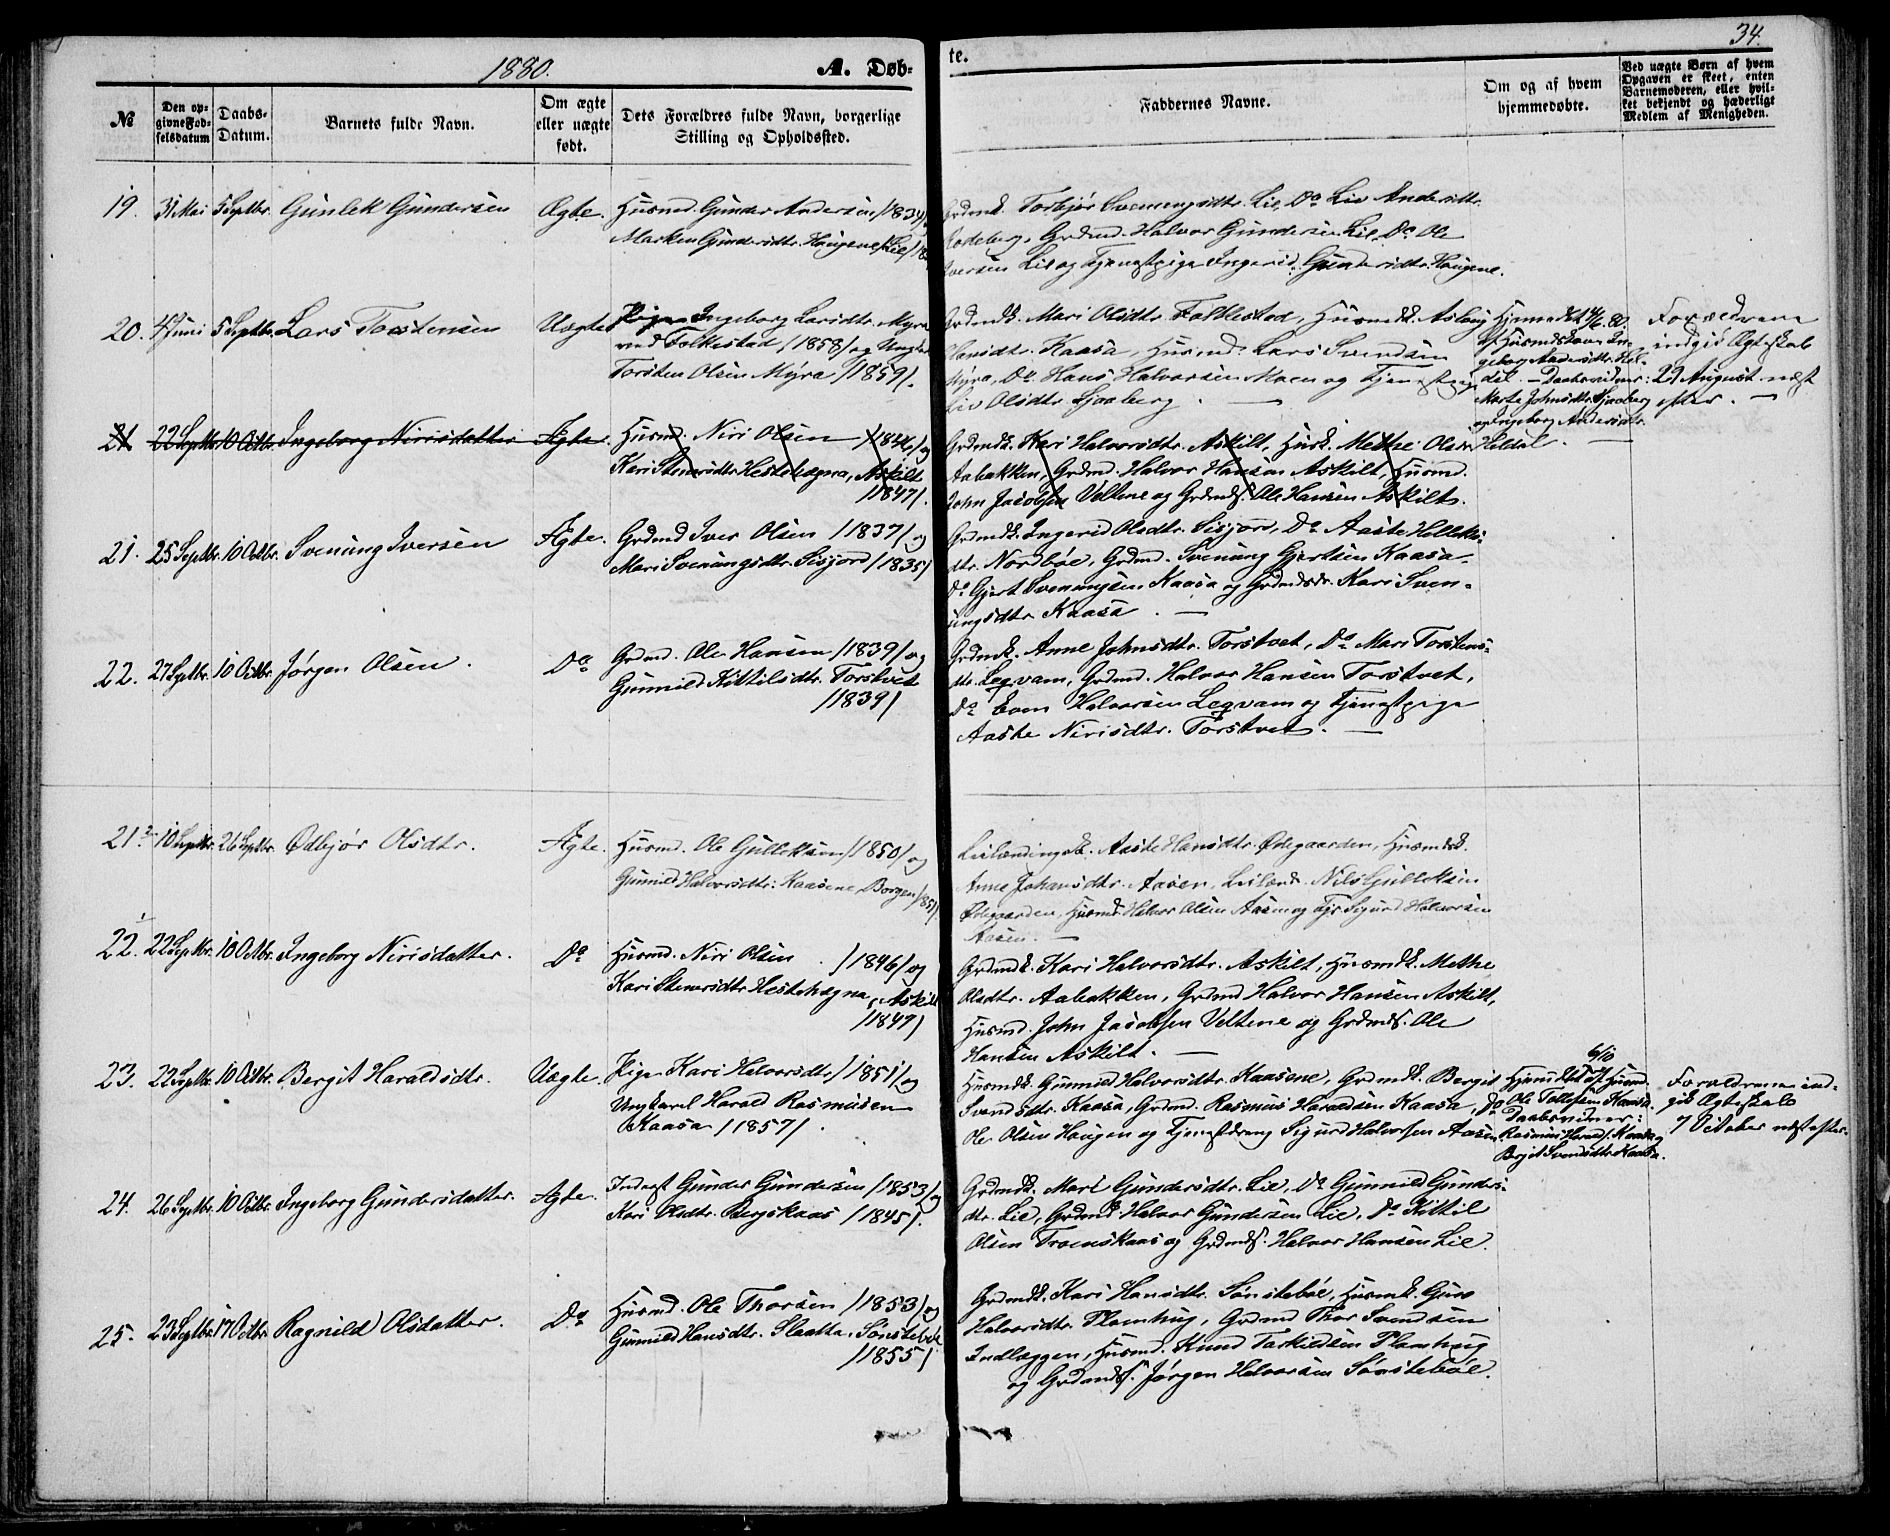 34.
1880.
A. Døb-
te.
№
Den op-
givne Fød-
selsdatum
Daabs-
Datum.
Barnets fulde Navn.
Om ægte
eller uægte
født.
Dets Forældres fulde Navn, borgerlige
Stilling og Opholdssted.
Faddernes Navne.
Om og af hvem
hjemmedøbte.
Ved uægte Børn af hvem
Opgaven er skeet, enten
Barnemoderen, eller hvil-
ket bekjendt og hæderligt
Medlem af Menigheden.
19. 31 Mai 5 Septbr. Gunlek Gundersen Ægte. Husmd. Gunder Andersen /1834/
Marken Gundersdtr. Haugene, Lie
Grdmk. Torbjør Sveinungsdtr. Lie, Do Liv Andersdtr.
Rodeberg, Grdmd. Halvor Gundersen Lie, Do Ole
Iversen Lie og Tjenestpige Ingerid Gundersdtr. Haugene.
20. 4 Juni 5 Septbr. Lars Torstensen Uægte Pige Ingeborg Larsdtr. Myra
ved Folkestad /1858/ og Ungkar
Torsten Olsen Myra /1859/.
Grdmdk. Mari Olsdtr. Folkestad, Husmdk. Aslaug
Hansdtr. Kaasa, Husmd. Lars Svendsen
Myra, Do Hans Halvorsen Moen og Tjenestpige
Liv Olsdtr. Sjaaberg. —
Hjemmedbt 4/6. 80.
af Husmdskone In-
geborg Andersdtr. Hel-
dal. — Daabsvidner:
Marte Johnsdtr. Sjaaberg
og Ingeborg Andersdtr.
Heldal. —
Forældrene
indgik Ægteskab
29 August næst
efter. —
21 22 Septbr. 10 Octbr. Ingeborg Nirisdatter Ægte. Husmd. Niri Olsen /1846/ og
Kari Stenersdtr. Hestehægna, Askilt
/1847/.
Grdmdk. Kari Halvorsdtr. Askilt, Husk. Methe Olsdtr
Aabakken, Grdmd. Halvor Hansen Askilt, Husmd.
John Jacobsen Veltene og Grdmds. Ole Hansen Askilt.
21. 25 Septbr. 10 Octbr. Svenung Iversen Ægte. Grdmd Iver Olsen /1837/ og
Mari Svenungsdtr. Sisjord /1835/
Grdmdk. Ingerid Olsdtr. Sisjord, Do Aaste Halleks-
dtr. Nordbøe, Grdmd. Svenung Gjertsen Kaasa,
Do Gjert Svenungsen Kaasa og Grdmdsdr. Kari Sven-
ungsdtr. Kaasa. —
22. 27 Septbr. 10 Octbr. Jørgen Olsen. Do Grdmd. Ole Hansen /1839/ og
Gunnild Kittilsdtr. Torstvet
/1839/
Grdmdk. Anne Johnsdtr. Torstvet, Do Mari Torstens-
dtr. Legvam, Grdmd. Halvor Hansen Torstvet,
Do Even Halvorsen Legvam og Tjenestpige
Aaste Nirisdtr. Torstvet. —
21 10 Septbr. 26 Septbr. Ødbjør Olsdtr. Ægte. Husmd. Ole Gulleksen /1850/ og
Gunnild Halvorsdtr. Kaasene, Borgen /1851/.
Leilændingsk. Aaste Hansdtr. Ødegaarden, Husmdk.
Anne Johansdtr. Aasen, Leilænd. Nils Gulleksen
Ødegaarden, Husmd Halvor Olsen Aasen og Tjr. Sigurd Halvorsen
Aasen. —
22. 22 Septbr. 10 Octbr. Ingeborg Nirisdatter. Do Husmd. Niri Olsen /1846/ og
Kari Stenersdtr. Hestehægna, Askilt
/1847/
Grdmdk. Kari Halvorsdtr. Askilt, Husmdk. Methe
Olsdtr. Aabakken, Grdmd Halvor Hansen Askilt,
Husmd. John Jacobsen Veltene og Grdmds. Ole
Hansen Askilt. —
23. 22 Septbr. 10 Octbr. Bergit Haraldsdtr. Uægte. Pige Kari Halvorsdtr. /1851/ og
Ungkarl Harald Rasmusen
Kaasa /1857/.
Husmdk. Gunnild Halvorsdtr. Kaasene, Grdmdk. Bergit
Svendsdtr. Kaasa, Grdmd. Rasmus Haraldsen Kaasa, Do
Ole Olsen Haugen og Tjenestdreng Sigurd Halvorsen Aasen
6/10
Hjemmedbt af Husmd.
Ole Tollefsen Kaasa.
Daabsvidner:
Rasmus Harald. Kaasa og
Bergit Svendsdtr. Kaasa.
Forældrene ind-
gik Ægteskab
7 October næst efter.
24. 26 Septbr. 10 Octbr. Ingeborg Gundersdatter. Ægte. Inderst Gunder Gundersen /1853/ og
Kari Olsdtr. Bergskaas /1845/.
Grdmdk. Mari Gundersdtr. Lie, Do Gunnild Gunders-
dtr. Lie, Grdmd. Halvor Gundersen Lie, Do Kittil
Olsen Troenskaas og Grdmds. Halvor Hansen Lie.
25. 23 Septbr. 17 Octbr. Ragnild Olsdatter. Do Husmd. Ole Thorsen /1853/ og
Gunnild Hansdtr. Slaatta, Sønstebøe
/1855/
Grdmdk. Kari Hansdtr. Sønstebøe, Husmk. Guro
Halvorsdtr. Plomhug, Grdmd Thor Svendsen
Indlæggen, Husmd. Knud Tarkildsen Plomhug
og Grdmds. Jørgen Halvorsen Sønstebøe.